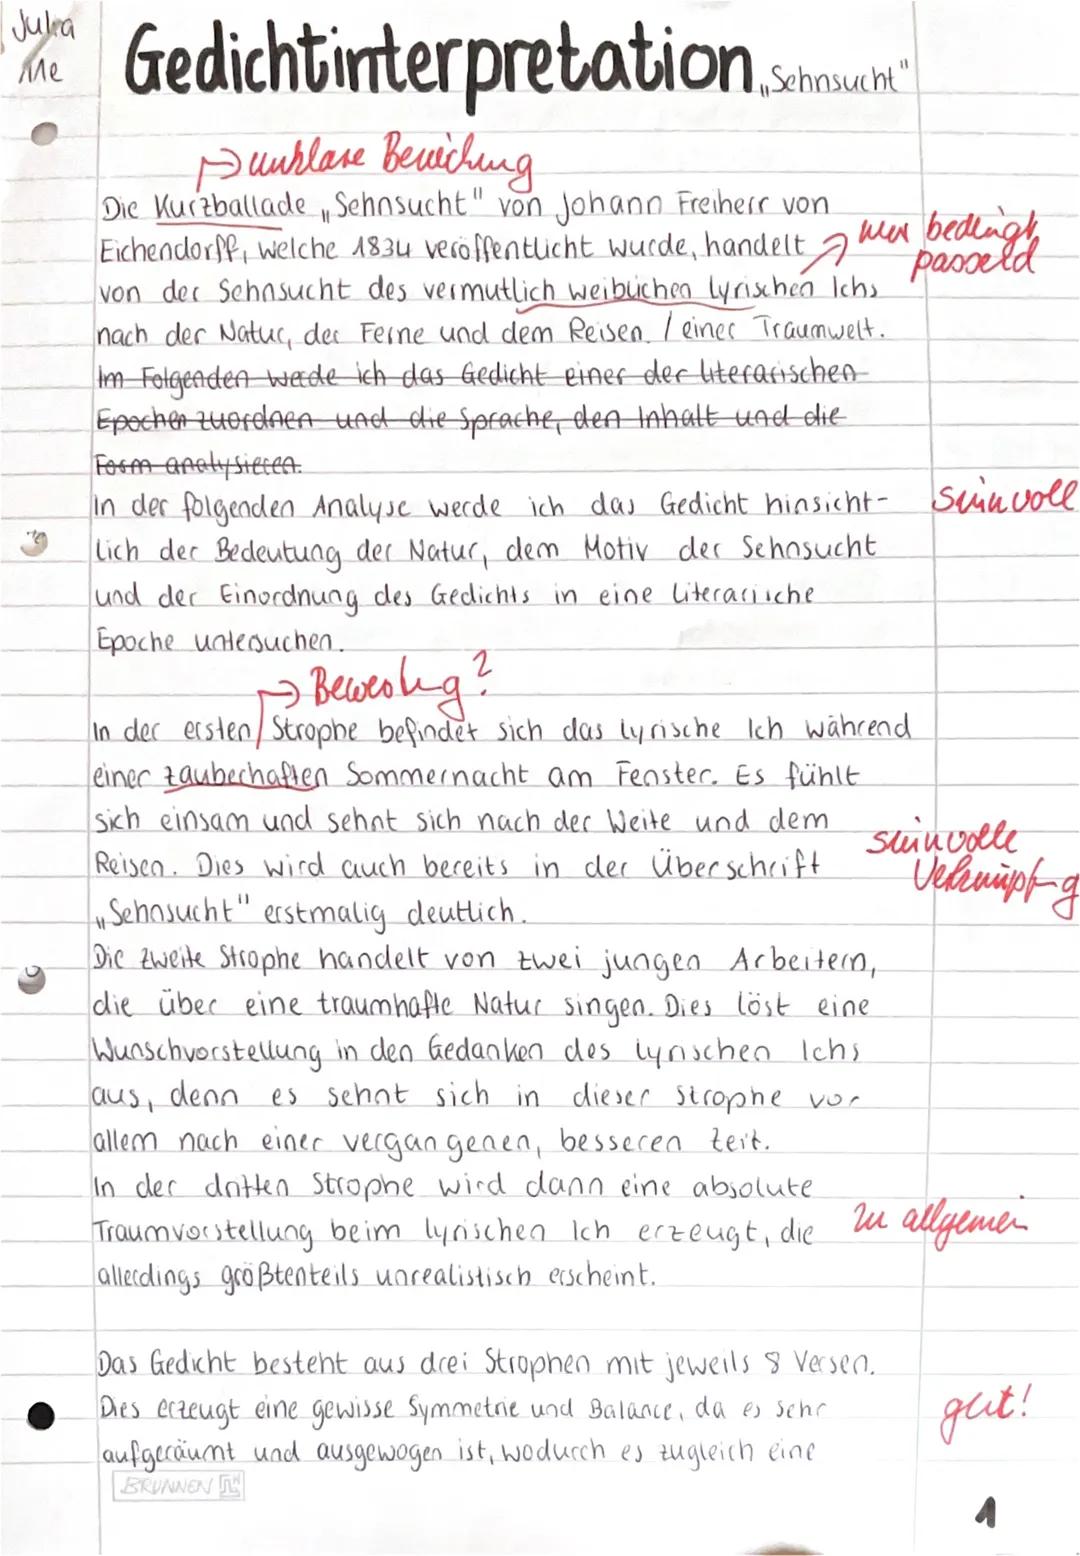 Julia
Me
Gedichtinterpretation „Sehnsucht"
→ unklare Bezeichnung
Die Kurzballade „Sehnsucht" von Johann Freiherr von
Eichendorff, welche 1834 veröffentlicht wurde, handelt
nur bedingt
passend
von der Sehnsucht des vermutlich weiblichen lyrischen Ichs
nach der Natur, der Ferne und dem Reisen / einer Traumwelt.
Im Folgenden werde ich das Gedicht einer der literarischen
Epochen zuordnen und die Sprache, den Inhalt und die
Form analysieren.
In der folgenden Analyse werde ich das Gedicht hinsicht-
sinnvoll
lich der Bedeutung der Natur, dem Motiv der Sehnsucht
und der Einordnung des Gedichts in eine literarische
Epoche untersuchen.
→ Bewertung?
In der ersten Strophe befindet sich das lyrische Ich während
einer zauberhaften Sommernacht am Fenster. Es fühlt
sich einsam und sehnt sich nach der Weite und dem
sinnvolle
Reisen. Dies wird auch bereits in der Überschrift
Verknüpfung
„Sehnsucht" erstmalig deutlich.
Die zweite Strophe handelt von zwei jungen Arbeitern,
die über eine traumhafte Natur singen. Dies löst eine
Wunschvorstellung in den Gedanken des lyrischen Ichs
aus, denn es sehnt sich in dieser Strophe vor
allem nach einer vergangenen, besseren Zeit.
In der dritten Strophe wird dann eine absolute
Traumvorstellung beim lyrischen Ich erzeugt, die
zu allgemein
allerdings größtenteils unrealistisch erscheint.
Das Gedicht besteht aus drei Strophen mit jeweils 8 Versen.
Dies erzeugt eine gewisse Symmetrie und Balance, da es sehr
gut!
aufgeräumt und ausgewogen ist, wodurch es zugleich eine
BRUNNEN
1